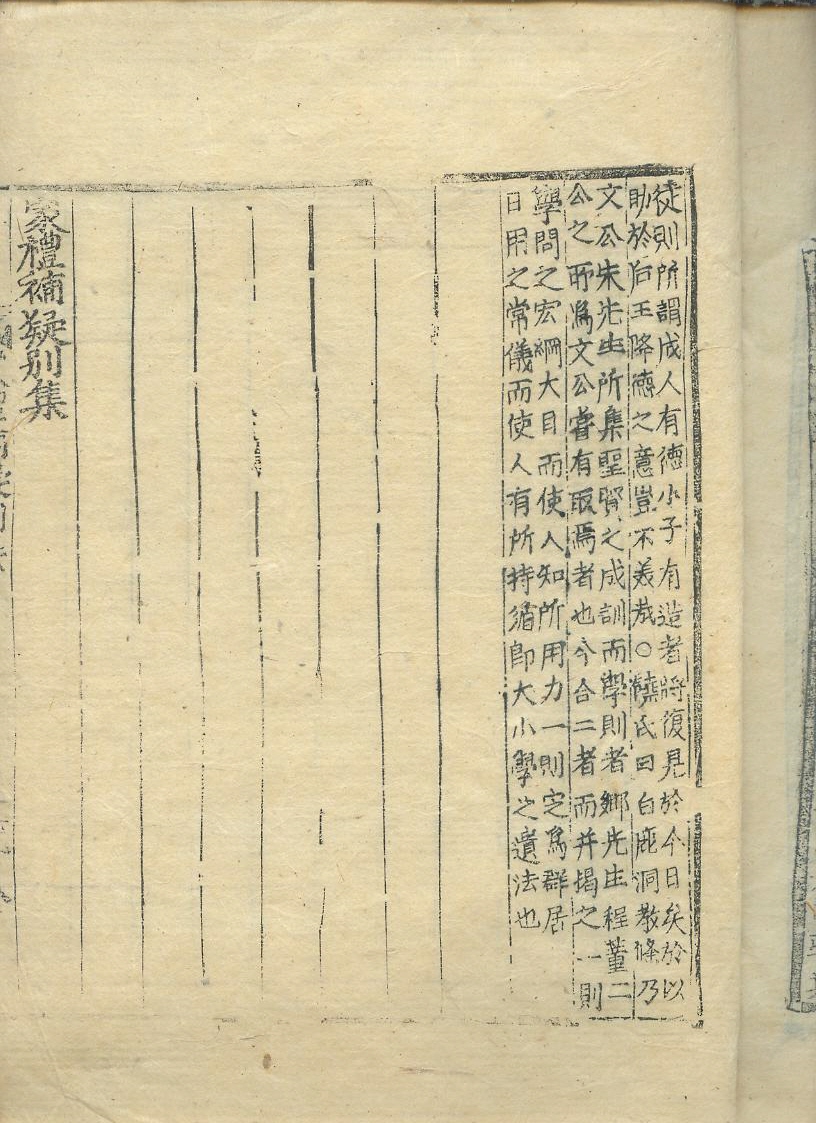 徒則所謂成人有德小子有造者將復見於今日矣於以
助於后王降德之意豈不美哉○饒氏曰白鹿洞敎條乃
文公朱先生所集聖賢之成訓而學則者鄕先生程董二
公之所爲文公嘗有取焉者也今合二者而并揭之一則
學問之宏綱大目而使人知所用力一則定爲群居
日用之常儀而使人有所持循卽大小學之遺法也
家禮補疑別集